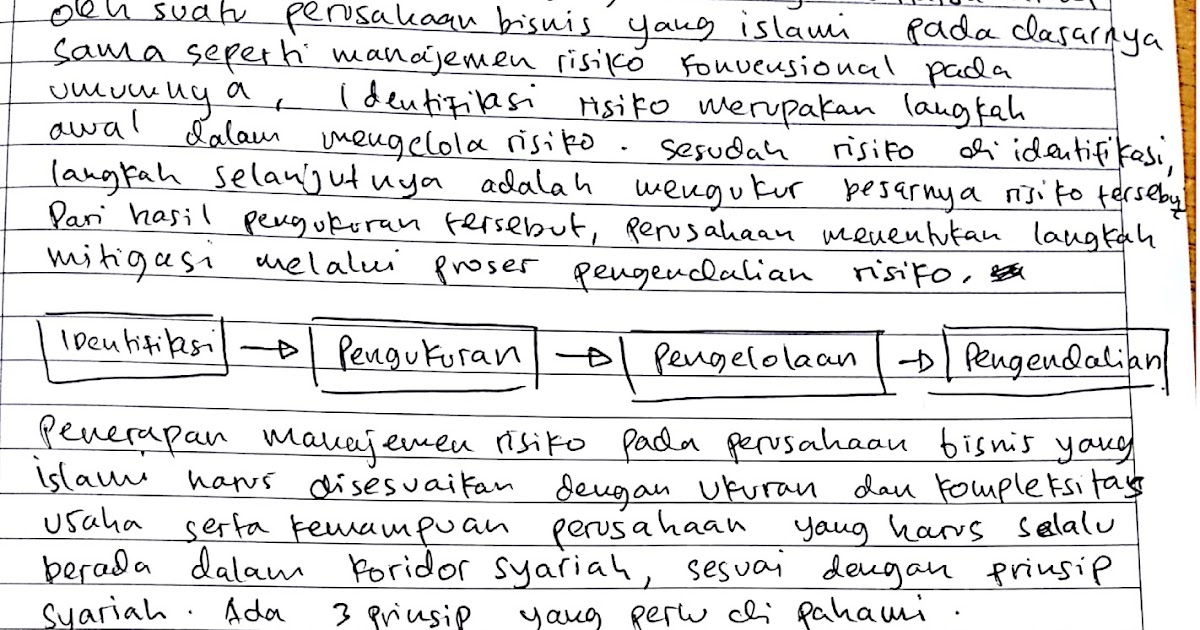 oleh suatu perusahaan bisnis yang islami pada dasarnya
sama seperti manajemen risiko konvensional pada
umumnya, Identifikasi risiko merupakan langkah
awal dalam mengelola risiko. sesudah risiko di identifikasi,
langkah selanjutnya adalah mengukur besarnya risiko tersebut
Dari hasil pengukuran tersebut, perusahaan menentukan langkah
mitigasi melalui proser pengendalian risiko.
Identifikasi → Pengukuran → Pengelolaan → Pengendalian
Penerapan manajemen risiko pada perusahaan bisnis yang
islami harus disesuaikan dengan ukuran dan kompleksitas
usaha serta kemampuan perusahaan yang harus selalu
berada dalam koridor syariah, sesuai dengan prinsip
syariah. Ada 3 prinsip yang perlu di pahami.